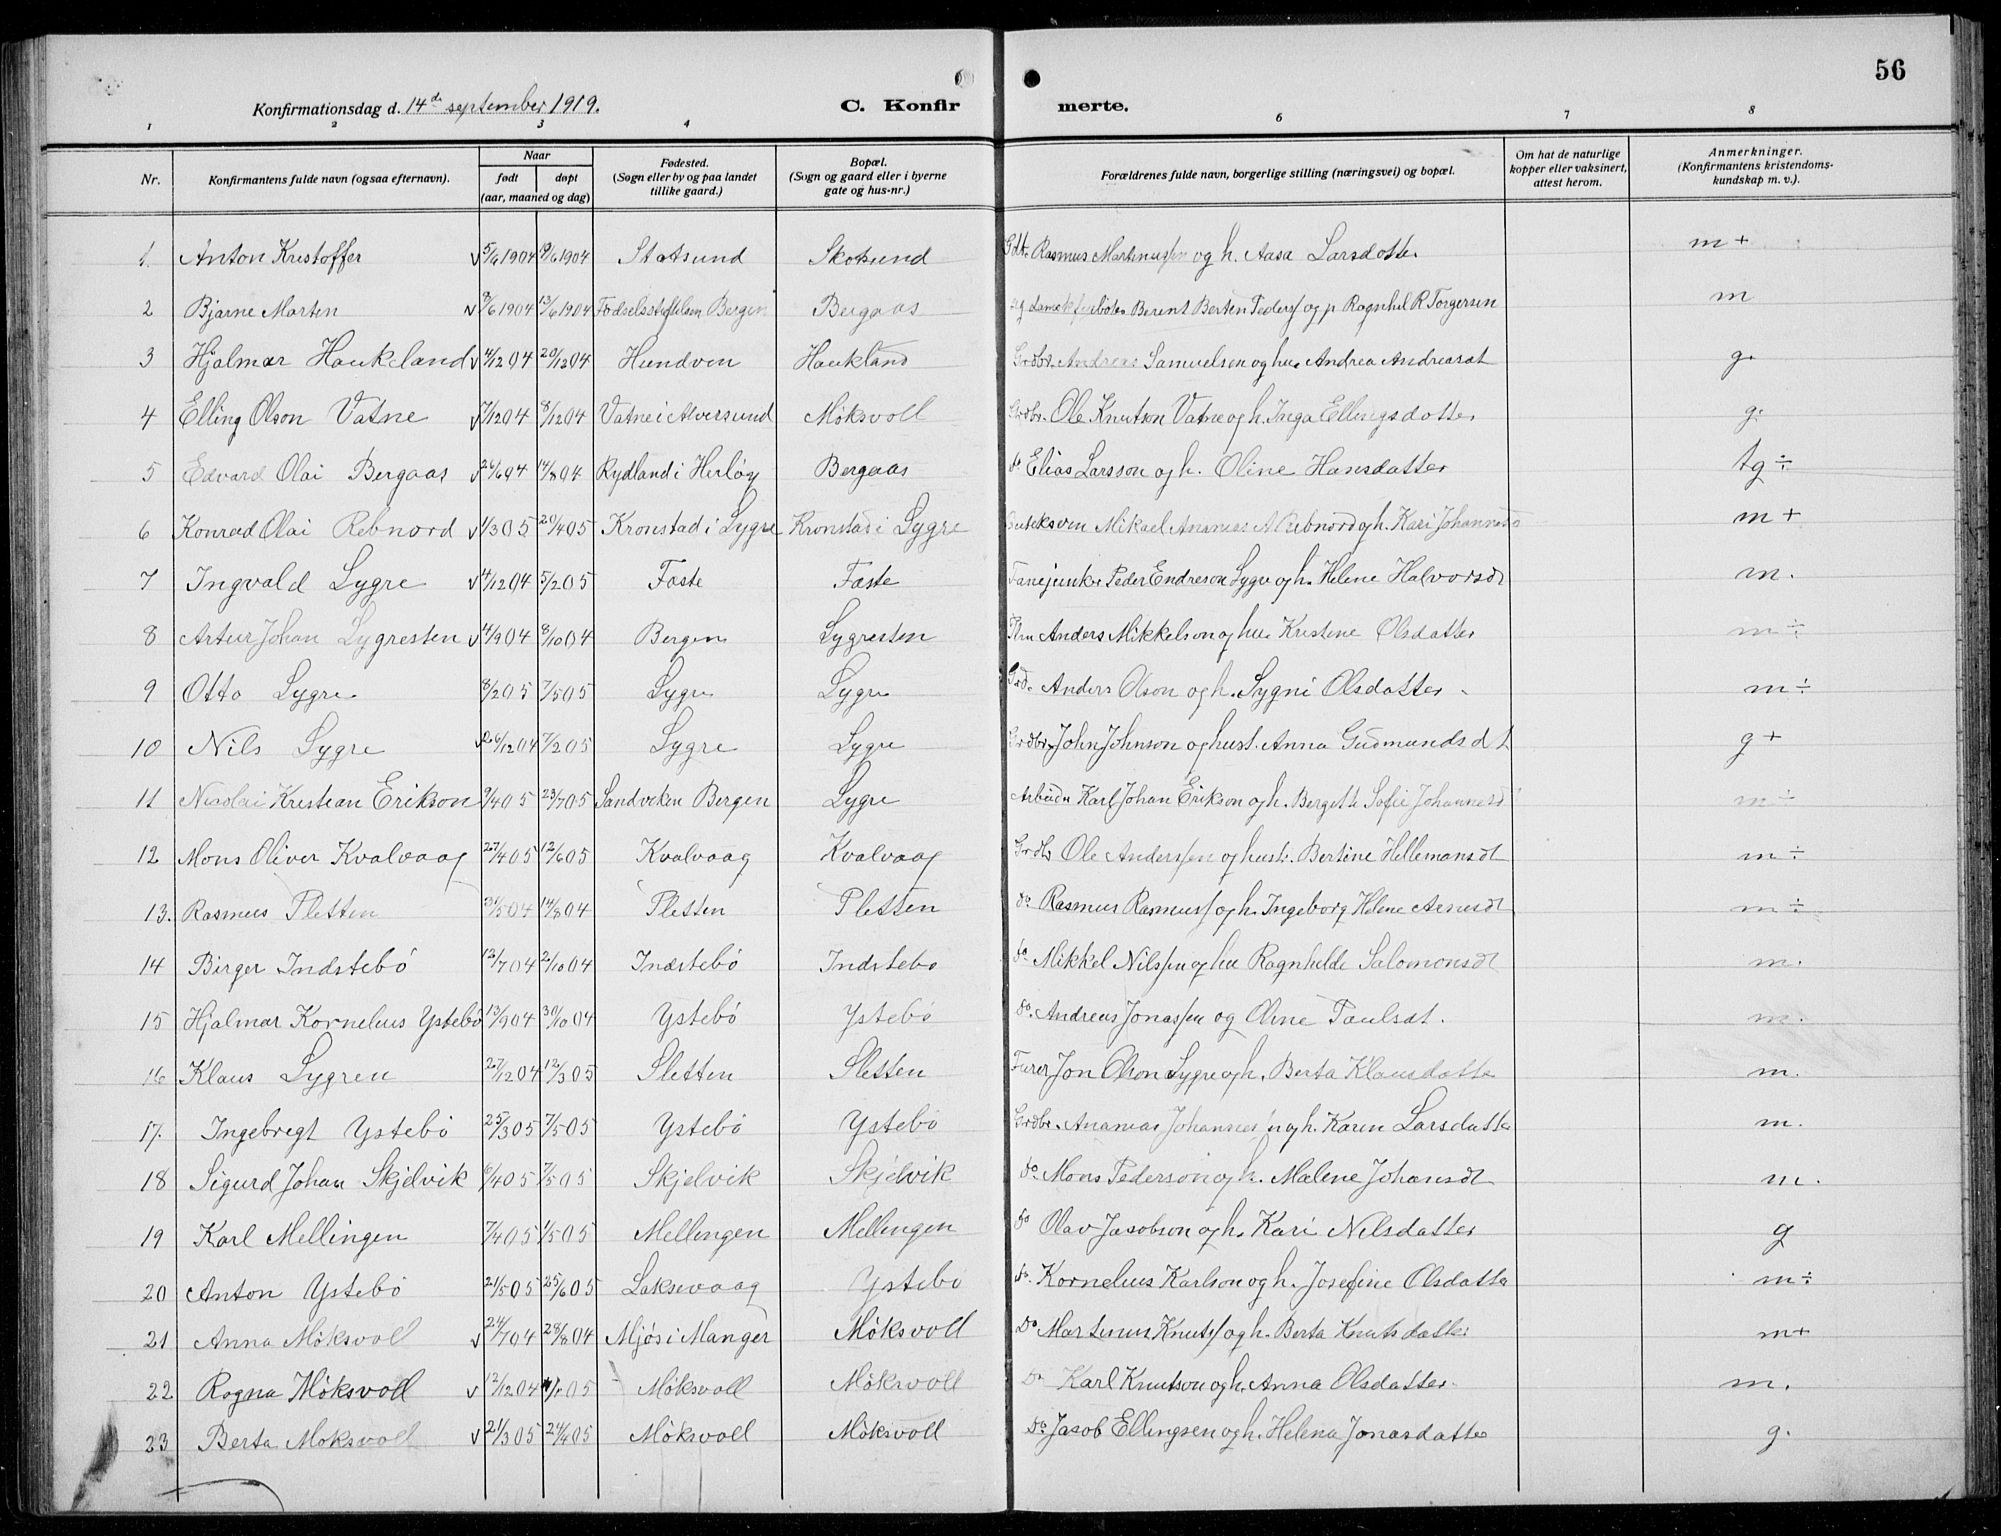 56
Konfirmationsdag d. 14de september 1919. C. Konfirmerte.
1 2 3 4 6 7 8
Nr. Konfirmantens fulde navn (ogsaa efternavn). Naar født døpt (aar, maaned og dag) Fødested. (Sogn eller by og paa landet tillike gaard.) Bopæl. (Sogn og gaard eller i byerne gate og hus-nr.) Forældrenes fulde navn, borgerlige stilling (næringsvei) og bopæl. Om hat de naturlige kopper eller vaksinert, attest herom. Anmerkninger. (Konfirmantens kristendomskundskap m. v.).
1. Anton Kristoffer v 5/6 1904 19/6 1904 Statsund Skotsund Rasmus Martinussen og h. Aasa Larsdatter m +
2 Bjarne Marten v 8/6 1904 13/6 1904 Fødselsstiftelsen Bergen Bergaas Berent Berten Peders og p Ragnhil R Torgersen m
3 Hjalmar Haukeland v 4/12 04 20/12 04 Hundven Haukland Grdbr. Andreas Samuelsen og hu. Andrea Andreasdt g.
4 Elling Olson Vatne v 7/12 04 8/12 04 Vatne i Alversund Møksvoll Grdbr. Ole Knutson Vatne og h. Inga Ellingsdotter g.
5 Edvard Olai Bergaas v 26/6 04 14/8 04 Rydland i Herløy Bergaas do Elias Larsson og h. Oline Hansdatter tg ÷
6 Konrad Olai Rebnord v 1/3 05 20/4 05 Kronstad i Lygre Kronstad i Lygre Mikael Ananias A Rebnord og h. Kari Johannesd m +
7 Ingvald Lygre v 4/12 04 5/2 05 Faste Faste Fanejunker Peder Endreson Lygre og h. Helene Halvorsdt m.
8 Artur Johan Lygresten v 4/9 04 8/10 04 Bergen Lygresten Anders Mikkelson og hu. Kristine Olsdatter m ÷
9 Otto Lygre 8/2 05 7/5 05 Lygre Lygre Anders Olson og h. Sygni Olsdatter m ÷
10 Nils Lygre v 26/12 04 7/2 05 Lygre Lygre Grdbr. John Johnson og hust. Anna Gudmundsdt g +
11 Nicolai Kristian Erikson 9/4 05 23/7 05 Sandviken Bergen Lygre Arbeider Karl Johan Erikson og h. Bergitte Sofie Johannesd m ÷
12 Mons Oliver Kvalvaag 27/4 05 12/6 05 Kvalvaag Kvalvaag Grdbr Ole Anderssen og hustr. Bertine Hellemansdt m ÷
13. Rasmus Sletten 14/8 04 Sletten Sletten do Rasmus Rasmuss og h. Ingeborg Helene Arnesdt m ÷
14 Birger Indstebø 13/7 04 2/10 04 Indstebø Indstebø do Mikkel Nilssen og hu Ragnhilde Salomonsdt m.
15 Hjalmar Kornelius Ystebø 13/9 04 30/10 04 Ystebø Ystebø do. Andreas Jonassen og Oline Paulsdt. m.
16 Klaus Lygren 27/12 04 12/3 05 Sletten Sletten Furer Jon Olson Lygre og h. Berta Klausdatter m.
17. Ingebregt Ystebø 25/3 05 7/5 05 Ystebø Ystebø Grdbr. Ananias Johannessen og h. Karen Larsdatter m.
18 Sigurd Johan Skjelvik 6/4 05 7/5 05 Skjelvik Skjelvik do Mons Pederson og h. Malene Johansdt m.
19 Karl Mellingen 7/4 05 1/5 05 Mellingen Mellingen do Olav Jacobson og h. Kari Nilsdatter g
20 Anton Ystebø 21/5 05 25/6 05 Laksevaag Ystebø do. Kornelius Karlson og h. Josefine Olsdatter m ÷
21 Anna Møksvoll v 24/7 04 28/8 04 Mjøs i Manger Møksvoll Do Martinus Knuts og h. Berta Knutsdatter m +
22 Ragna Møksvoll v 12/12 04 05 Møksvoll Møksvoll Do Karl Knutson og h. Anna Olsdatter m.
23 Berta Møksvoll v 21/3 05 24/4 05 Møksvoll Møksvoll Do Jasob Ellingsen og h. Helena Jonasdatter g.